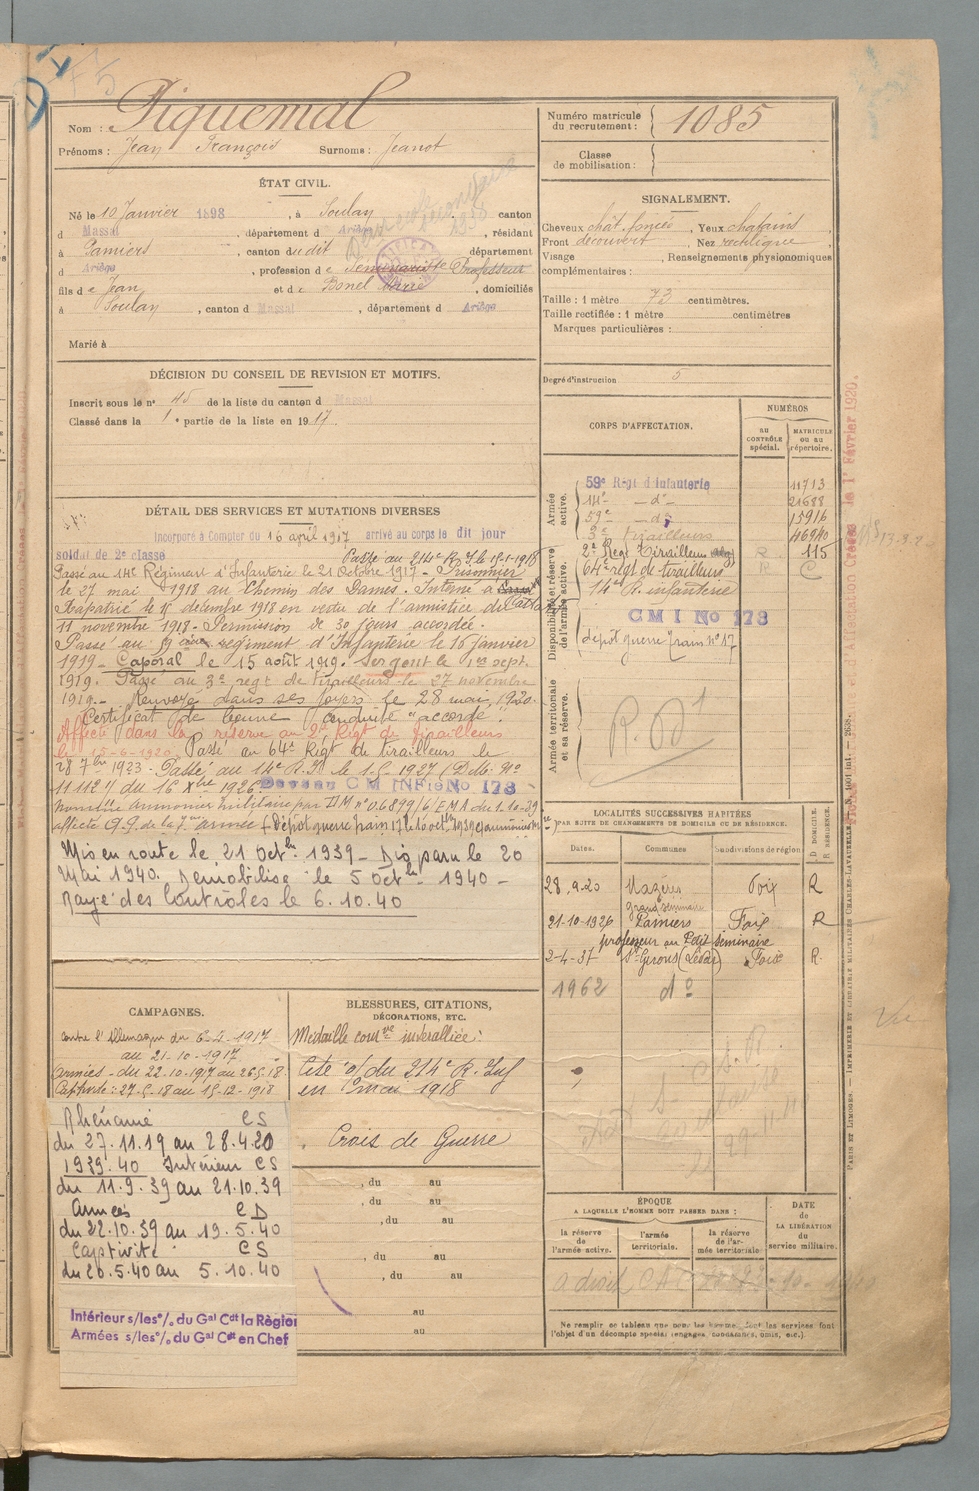 Nom : Piquemal
Prénoms : Jean François Surnoms : Jeanot
Numéro matricule du recrutement : 1085
Classe de mobilisation :
ÉTAT CIVIL.
Né le 10 Janvier 1898, à Soulan, canton
d Massat, département d Ariège, résidant
à Pamiers, canton du dit département
d Ariège, profession de Séminariste Professeur
fils de Jean et de Bonel Marie, domiciliés
à Soulan, canton d Massat, département d Ariège
Marié à
SIGNALEMENT.
Cheveux chât. foncés, Yeux châtains
Front découvert, Nez rectiligne
Visage Renseignements physionomiques
complémentaires :
Taille : 1 mètre 73 centimètres.
Taille rectifiée : 1 mètre centimètres
Marques particulières :
Degré d'instruction 5
DÉCISION DU CONSEIL DE REVISION ET MOTIFS.
Inscrit sous le n° 45 de la liste du canton d Massat
Classé dans la 1e partie de la liste en 1917
CORPS D'AFFECTATION.
NUMÉROS
AU CONTRÔLE spécial.
MATRICULE ou au répertoire.
Armée active.
59e Régt d'Infanterie 11713
14e -d°- 21688
59e -d°- 15916
3e tirailleurs 46940
Disponibilité et réserve de l'armée active.
2e Régt Tirailleurs R 115
64e régt de tirailleurs R C
14e R. infanterie
CMI No 178
dépôt guerre train n° 17
Armée territoriale et sa réserve.
DÉTAIL DES SERVICES ET MUTATIONS DIVERSES
Incorporé à Compter du 16 avril 1917 arrivé au corps le dit jour
soldat de 2e classe Passé au 214e R.I. le 15-1-1918
Passé au 14e Régiment d'Infanterie le 21 Octobre 1917 - Prisonnier
le 27 mai 1918 au Chemin des Dames. Interné à
Rapatrié le 15 décembre 1918 en vertu de l'armistice du
11 novembre 1918 - Permission de 30 jours accordée.
Passé au 59 ème régiment d'Infanterie le 16 janvier
1919 - Caporal le 15 août 1919. Sergent le 1er sept.
1919. Passé au 3e regt de tirailleurs le 27 novembre
1919. - Renvoyé dans ses foyers le 28 mai 1920.
Certificat de bonne conduite "accordé".
Affecté dans la réserve au 2e Régt de tirailleurs
le 15-6-1920. Passé au 64e Régt de tirailleurs le
28 7bre 1923 - Passé au 14e R.I. le 1-5-1927 (D.M. N°
11112 du 16 Xbre 1926 CM INFie No 178
Nommé aumonier militaire par D.M n° 06899/6/EMA du 1.10.39
affecté Q.G. de la 7ème armée Dépôt guerre train 17 le
Mis en route le 21 Octbre 1939 - Disparu le 20
Mai 1940. Démobilisé le 5 Octbre 1940 -
Rayé des Contrôles le 6.10.40
LOCALITÉS SUCCESSIVES HABITÉES
PAR SUITE DE CHANGEMENTS DE DOMICILE OU DE RÉSIDENCE.
Dates. Communes Subdivisions de région D DOMICILE. R RÉSIDENCE.
28-9-20 Mazères Foix R
grand séminaire
21-10-1926 Pamiers Foix R
professeur au Petit séminaire
2-4-37 St Girons Foix R
1962 d°
CAMPAGNES.
contre l'Allemagne du 6-4-1917
au 21-10-1917.
armées - du 22-10-1917 au 26.5.18.
Captivité : 27-5-18 au 15-12-1918
Rhénanie CS
du 27.11.19 au 28.4.20
1939.40 Intérieur CS
du 11.9.39 au 21.10.39
Armées CD
du 22.10.39 au 19.5.40
Captivité CS
du 20.5.40 au 5.10.40
Intérieur s/les°/. du Gal Cdt la Région
Armées s/les°/. du Gal Cdt en Chef
BLESSURES, CITATIONS,
DÉCORATIONS, ETC.
Médaille comve interalliée.
Cité o/ du 214e R. Inf
en mars 1918
Croix de Guerre
, du au
, du au
, du au
, du au
, du au
au
au
ÉPOQUE
A LAQUELLE L'HOMME DOIT PASSER DANS :
la réserve de l'armée active.
l'armée territoriale.
la réserve de l'armée territoriale
DATE de LA LIBÉRATION du service militaire.
Ne remplir ce tableau que pour les hommes dont les services font
l'objet d'un décompte spécial (engagés, condamnés, omis, etc.).
PARIS ET LIMOGES. — IMPRIMERIE ET LIBRAIRIE MILITAIRES CHARLES-LAVAUZELLE.